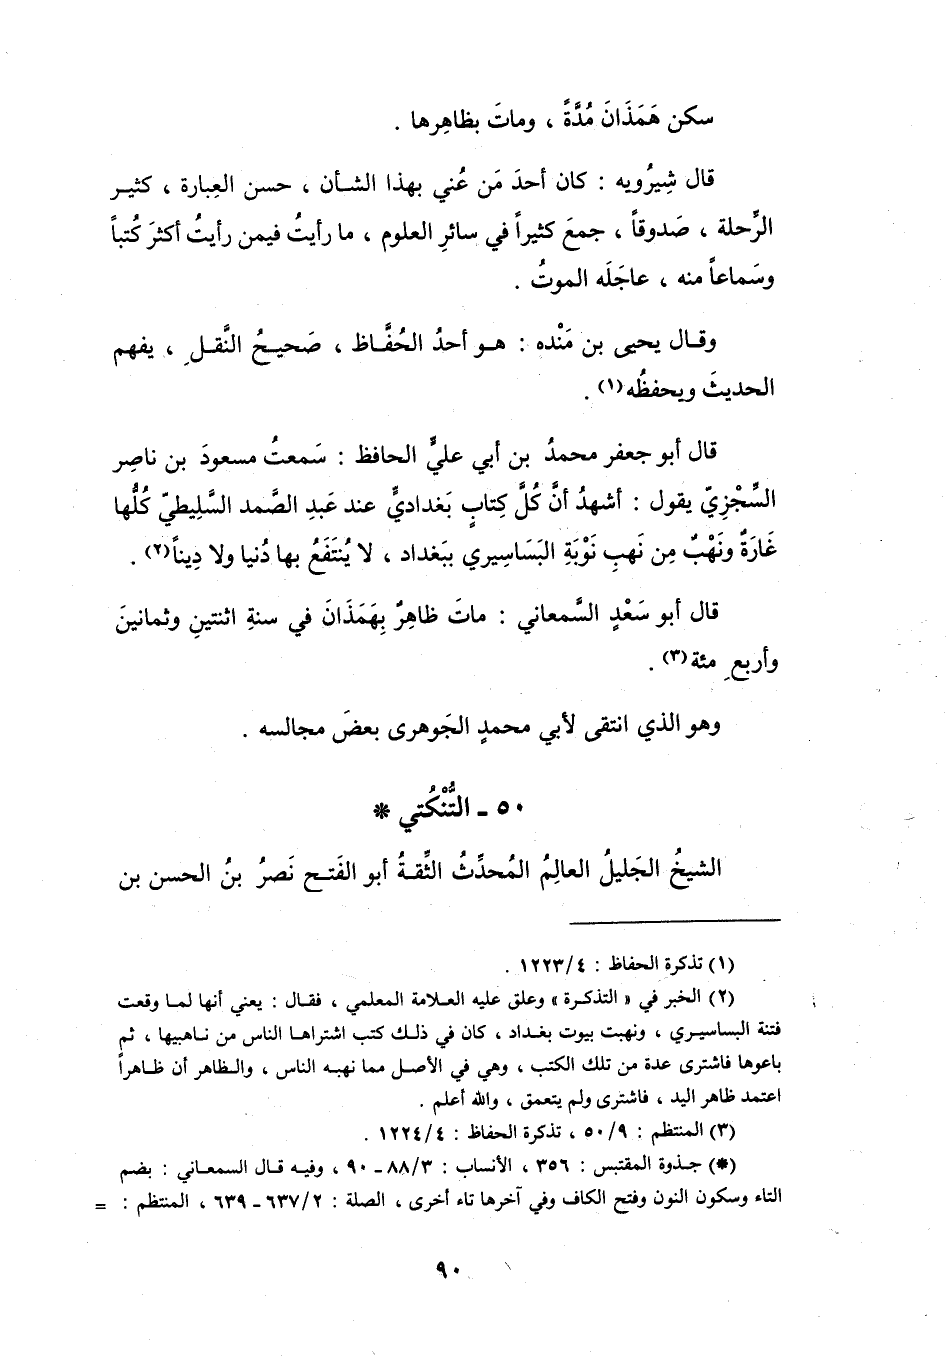 سكن هَمَذَانَ مُدَّةً ، وماتَ بظاهِرها .
قال شِيرُويه : كان أحدَ مَن عُني بهذا الشأن ، حسن العِبارة ، كثير
الرِّحلة ، صَدوقاً ، جمعَ كثيراً في سائرِ العلوم ، ما رأيتُ فيمن رأيتُ أكثرَ كُتباً
وسَماعاً منه ، عاجَلَه الموتُ .
وقال يحيى بن مَنْده : هو أحدُ الحُفَّاظ ، صَحيحُ النَّقلِ ، يفهم
الحديثَ ويحفظُه (١) .
قال أبو جعفر محمدُ بن أبي عليٍّ الحافظ : سَمعتُ مسعودَ بن ناصِر
السِّجْزِيّ يقول : أشهدُ أنَّ كُلَّ كِتابٍ بَغداديٍّ عند عَبدِ الصَّمد السَّلِيطيّ كُلُّها
غَارَةٌ ونَهْبٌ مِن نَهبِ نَوْبَةِ البَسَاسِيري ببَغداد ، لا يُنتَفَعُ بها دُنيا ولا دِيناً (٢) .
قال أبو سَعْدٍ السَّمعاني : ماتَ ظاهِرٌ بِهَمَذَانَ في سنةِ اثنتينِ وثمانينَ
وأربعِ مئة (٣) .
وهو الذي انتقى لأبي محمدٍ الجَوهرى بعضَ مجالسه .
٥٠ ـ التُّنْكُتي *
الشيخُ الجَليلُ العالِمُ المُحدِّثُ الثِّقةُ أبو الفَتح نَصرُ بنُ الحسن بن
(١) تذكرة الحفاظ : ٤/١٢٢٣ .
(٢) الخبر في « التذكرة » وعلق عليه العلامة المعلمي ، فقال : يعني أنها لما وقعت
فتنة البساسيري ، ونهبت بيوت بغداد ، كان في ذلك كتب اشتراها الناس من ناهبيها ، ثم
باعوها فاشترى عدة من تلك الكتب ، وهي في الأصل مما نهبه الناس ، والظاهر أن ظاهراً
اعتمد ظاهر اليد ، فاشترى ولم يتعمق ، والله أعلم .
(٣) المنتظم : ٩/٥٠ ، تذكرة الحفاظ : ٤/١٢٢٤ .
(*) جذوة المقتبس : ٣٥٦ ، الأنساب : ٣/٨٨ ـ ٩٠ ، وفيه قال السمعاني : بضم
التاء وسكون النون وفتح الكاف وفي آخرها تاء أخرى ، الصلة : ٢/٦٣٧ ـ ٦٣٩ ، المنتظم : =
٩٠